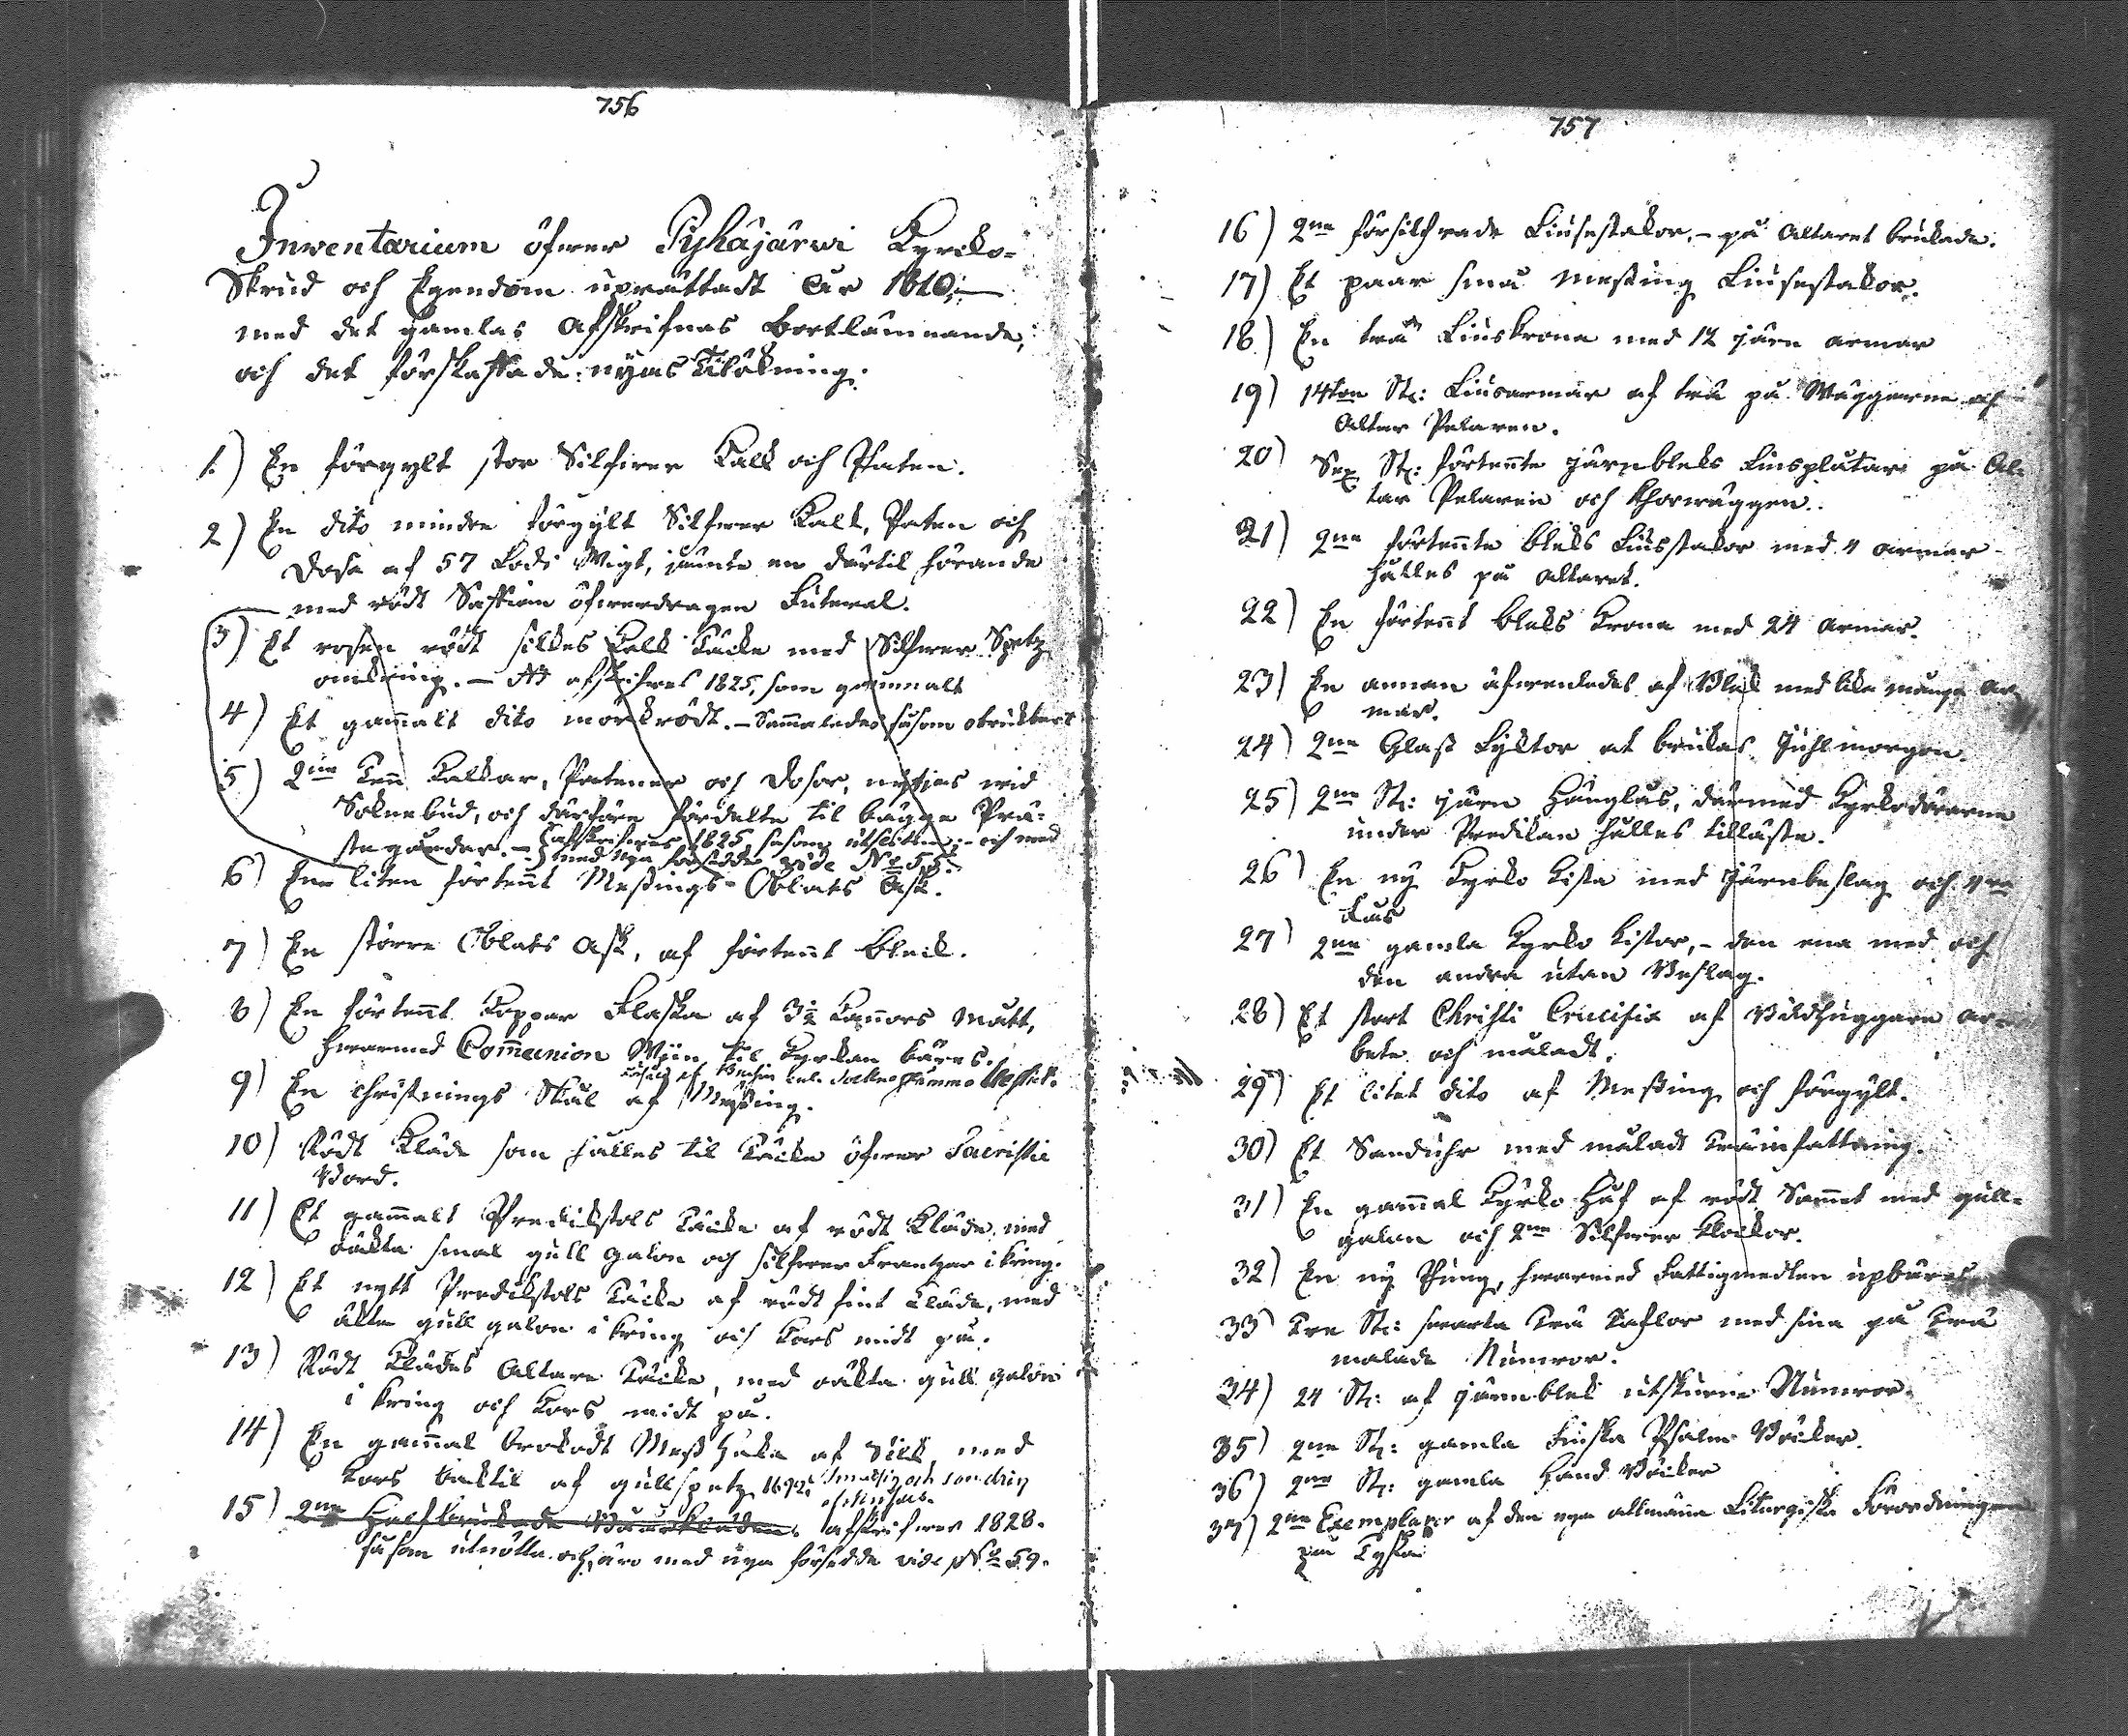 756
Inventarium öfwer Pyhäjärwi Kyrko-
Skrud och Egendom uprättadt År 1810;
med det gamlas Afskrifnas Bortlämnande,
och det förskaffade nyas Tilökning.
1.) En förgylt stor Silfwer Kalk och Paten.
2) En dito mindre förgylt Silfwer Kalk, Paten och
Dosa af 57 Lods Wigt, jämte en därtil hörande
med rödt Saffian öfwerdragen Futeral.
3) Et rosen rödt silkes Kalk Täcke med Silfwer Spetz
omkring. — afskrifwes 1825, som gammalt
4) Et gam̄alt dito mörkrödt. — Sammaledes såsom obrukbart
5) 2ne Ten̄ Kalkar, Patener och Dosor, nyttjas wid
Soknebud, och därföre fördelte til bägge Prä-
stegårdar. — afskrifwes 1825 såsom utslitne, och med
med nya försedde vide No 55.
6) En liten förten̄t Messings-Oblats Ask.
7) En större Oblats Ask, af förten̄t Bleck.
8) En förten̄t Koppar Flaska af 3½ Kan̄ors Mått,
hwarmed Com̄union Wijn til Kyrkan bäres.
9) En Christnings Skål af Messing.
10) Rödt Kläde som hålles til Täcke öfwer Sacristie
Bord.
11) Et gam̄alt Predikstols Täcke af rödt Kläde, med
oäkta smal gull galon och silfwer Frantzar ikring.
12) Et nytt Predikstols Täcke af rödt fint Kläde, med
äkta gull galon ikring och Kors midt på.
13) Rödt Klädes Altare Täcke, med oäkta gull galon
i kring och Kors midt på.
14) En gam̄al brokadt Mess Hake af Silk, med
Kors baktil af gullspetz 1692
15) 2ne Half brukade Bårkläden afskrifwes 1828.
såsom utnötta och äro med nya försedda vide No 59.
757
16) 2ne försilfrade Liusestakar, - på Altaret brukade.
17) Et paar små Messing Liusestakar.
18) En trä Liuskrona med 12 järn armar
19) 14ton St: Liusarmar af trä på Wäggarne och
Altar Pelaren.
20) Sex St: förtente järnblecks Liusplåtar på Al-
tar Pelaren och Chorwäggen.
21) 2ne förtente blecks Liusstakar med 4 armar
hålles på Altaret.
22) En förtent blecks Krona med 24 armar.
23) En annan äfwenledes af Bleck med lika många ar-
mar.
24) 2ne Glass Lycktor at brukas Juhlmorgon.
25) 2ne St: järn Hänglås, därmed Kyrkodörarne
under Predikan hålles tillåste.
26) En ny Kyrko Kista med järnbeslag och 4ra
Lås
27) 2ne gamla Kyrko Kistor, - den ena med och
den andra utan Beslag.
28) Et stort Christi Crucifix af Bildhuggare ar-
bete och måladt.
29) Et litet dito af Messing och förgylt.
30) Et Sanduhr med måladt träinfattning.
31) En gam̄al Kyrko Håf af rödt Sam̄et med gull-
galon och 2ne Silfwer Klockor.
32) En ny Pung, hwarmed Fattigmedlen upbäres
33) Tre St: swarta Trä Taflor med sina på Trä
målade Numror.
34) 24 St: af järnbleck utskurne Numror.
35) 2ne St: gamla Finska Psalm Böcker.
36) 2ne St: gamla Hand Böcker
37) 2ne Exemplarer af den nya allmänna Liturgiska Förordningen
på Tyska